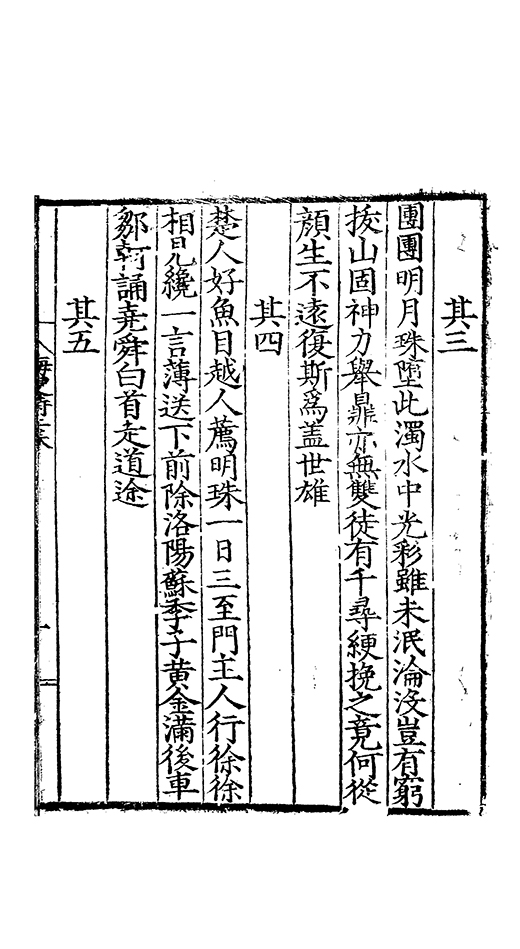 其三
團團明月珠墮此濁水中光彩雖未泯淪没豈有窮
拔山固神力舉鼎亦無雙徒有千尋綆挽之竟何從
顔生不遠復斯為蓋世雄
其四
楚人好魚目越人薦明珠一日三至門主人行徐徐
相見纔一言薄送下前除洛陽蘇季子黄金滿後車
鄒軻誦堯舜白首走道途
其五